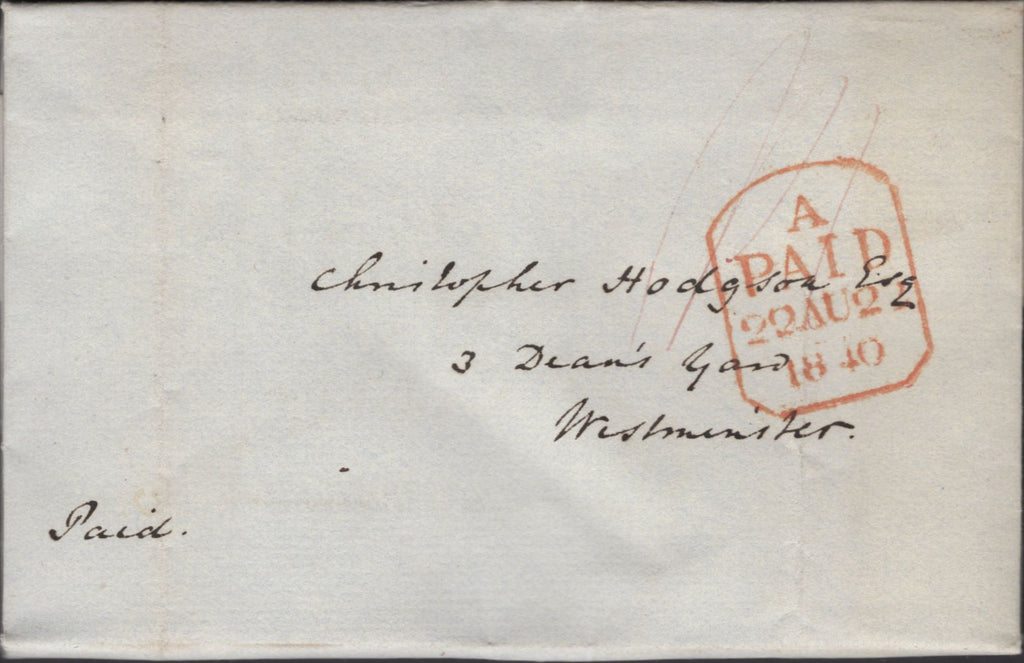 A
PAID
22AU22
1840
Christopher Hodgson Esq
3 Dean's Yard
Westminster.
Paid.